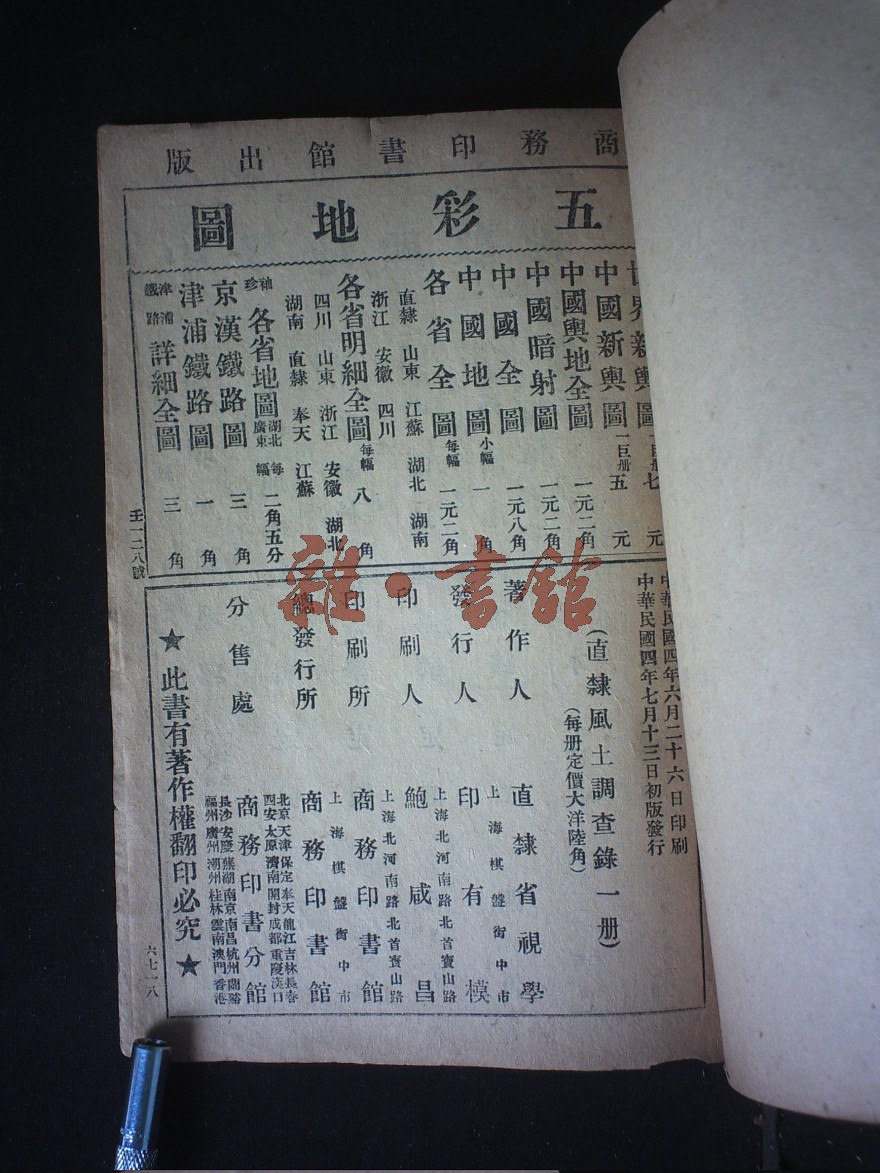 商務印書館出版
五彩地圖
世界新輿圖 一巨册 七元
中國新輿圖 一巨册 五元
中國輿地全圖 一元二角
中國暗射圖 一元二角
中國全圖 一元八角
中國地圖 小幅 一角
各省全圖 每幅 一元二角
直隸 山東 江蘇 湖北 湖南
浙江 安徽 四川
各省明細全圖 每幅 八角
四川 山東 浙江 安徽 湖北
湖南 直隸 奉天 江蘇
袖珍 各省地圖 湖北 廣東 每幅 二角五分
京漢鐵路圖 三角
津浦鐵路圖 一角
津浦鐵路 詳細全圖 三角
壬一二八號
中華民國四年六月二十六日印刷
中華民國四年七月十三日初版發行
(直隸風土調查錄一册)
(每册定價大洋陸角)
著作人 直隸省視學
上海棋盤街中市
發行人 印有模
上海北河南路北首寶山路
印刷人 鮑咸昌
上海北河南路北首寶山路
印刷所 商務印書館
上海棋盤街中市
總發行所 商務印書館
北京天津保定奉天龍江吉林長春
西安太原濟南開封成都重慶漢口
分售處 商務印書分館
長沙安慶蕪湖南京南昌杭州蘭谿
福州廣州潮州桂林雲南澳門香港
★此書有著作權翻印必究★
六七一八
雜·書館